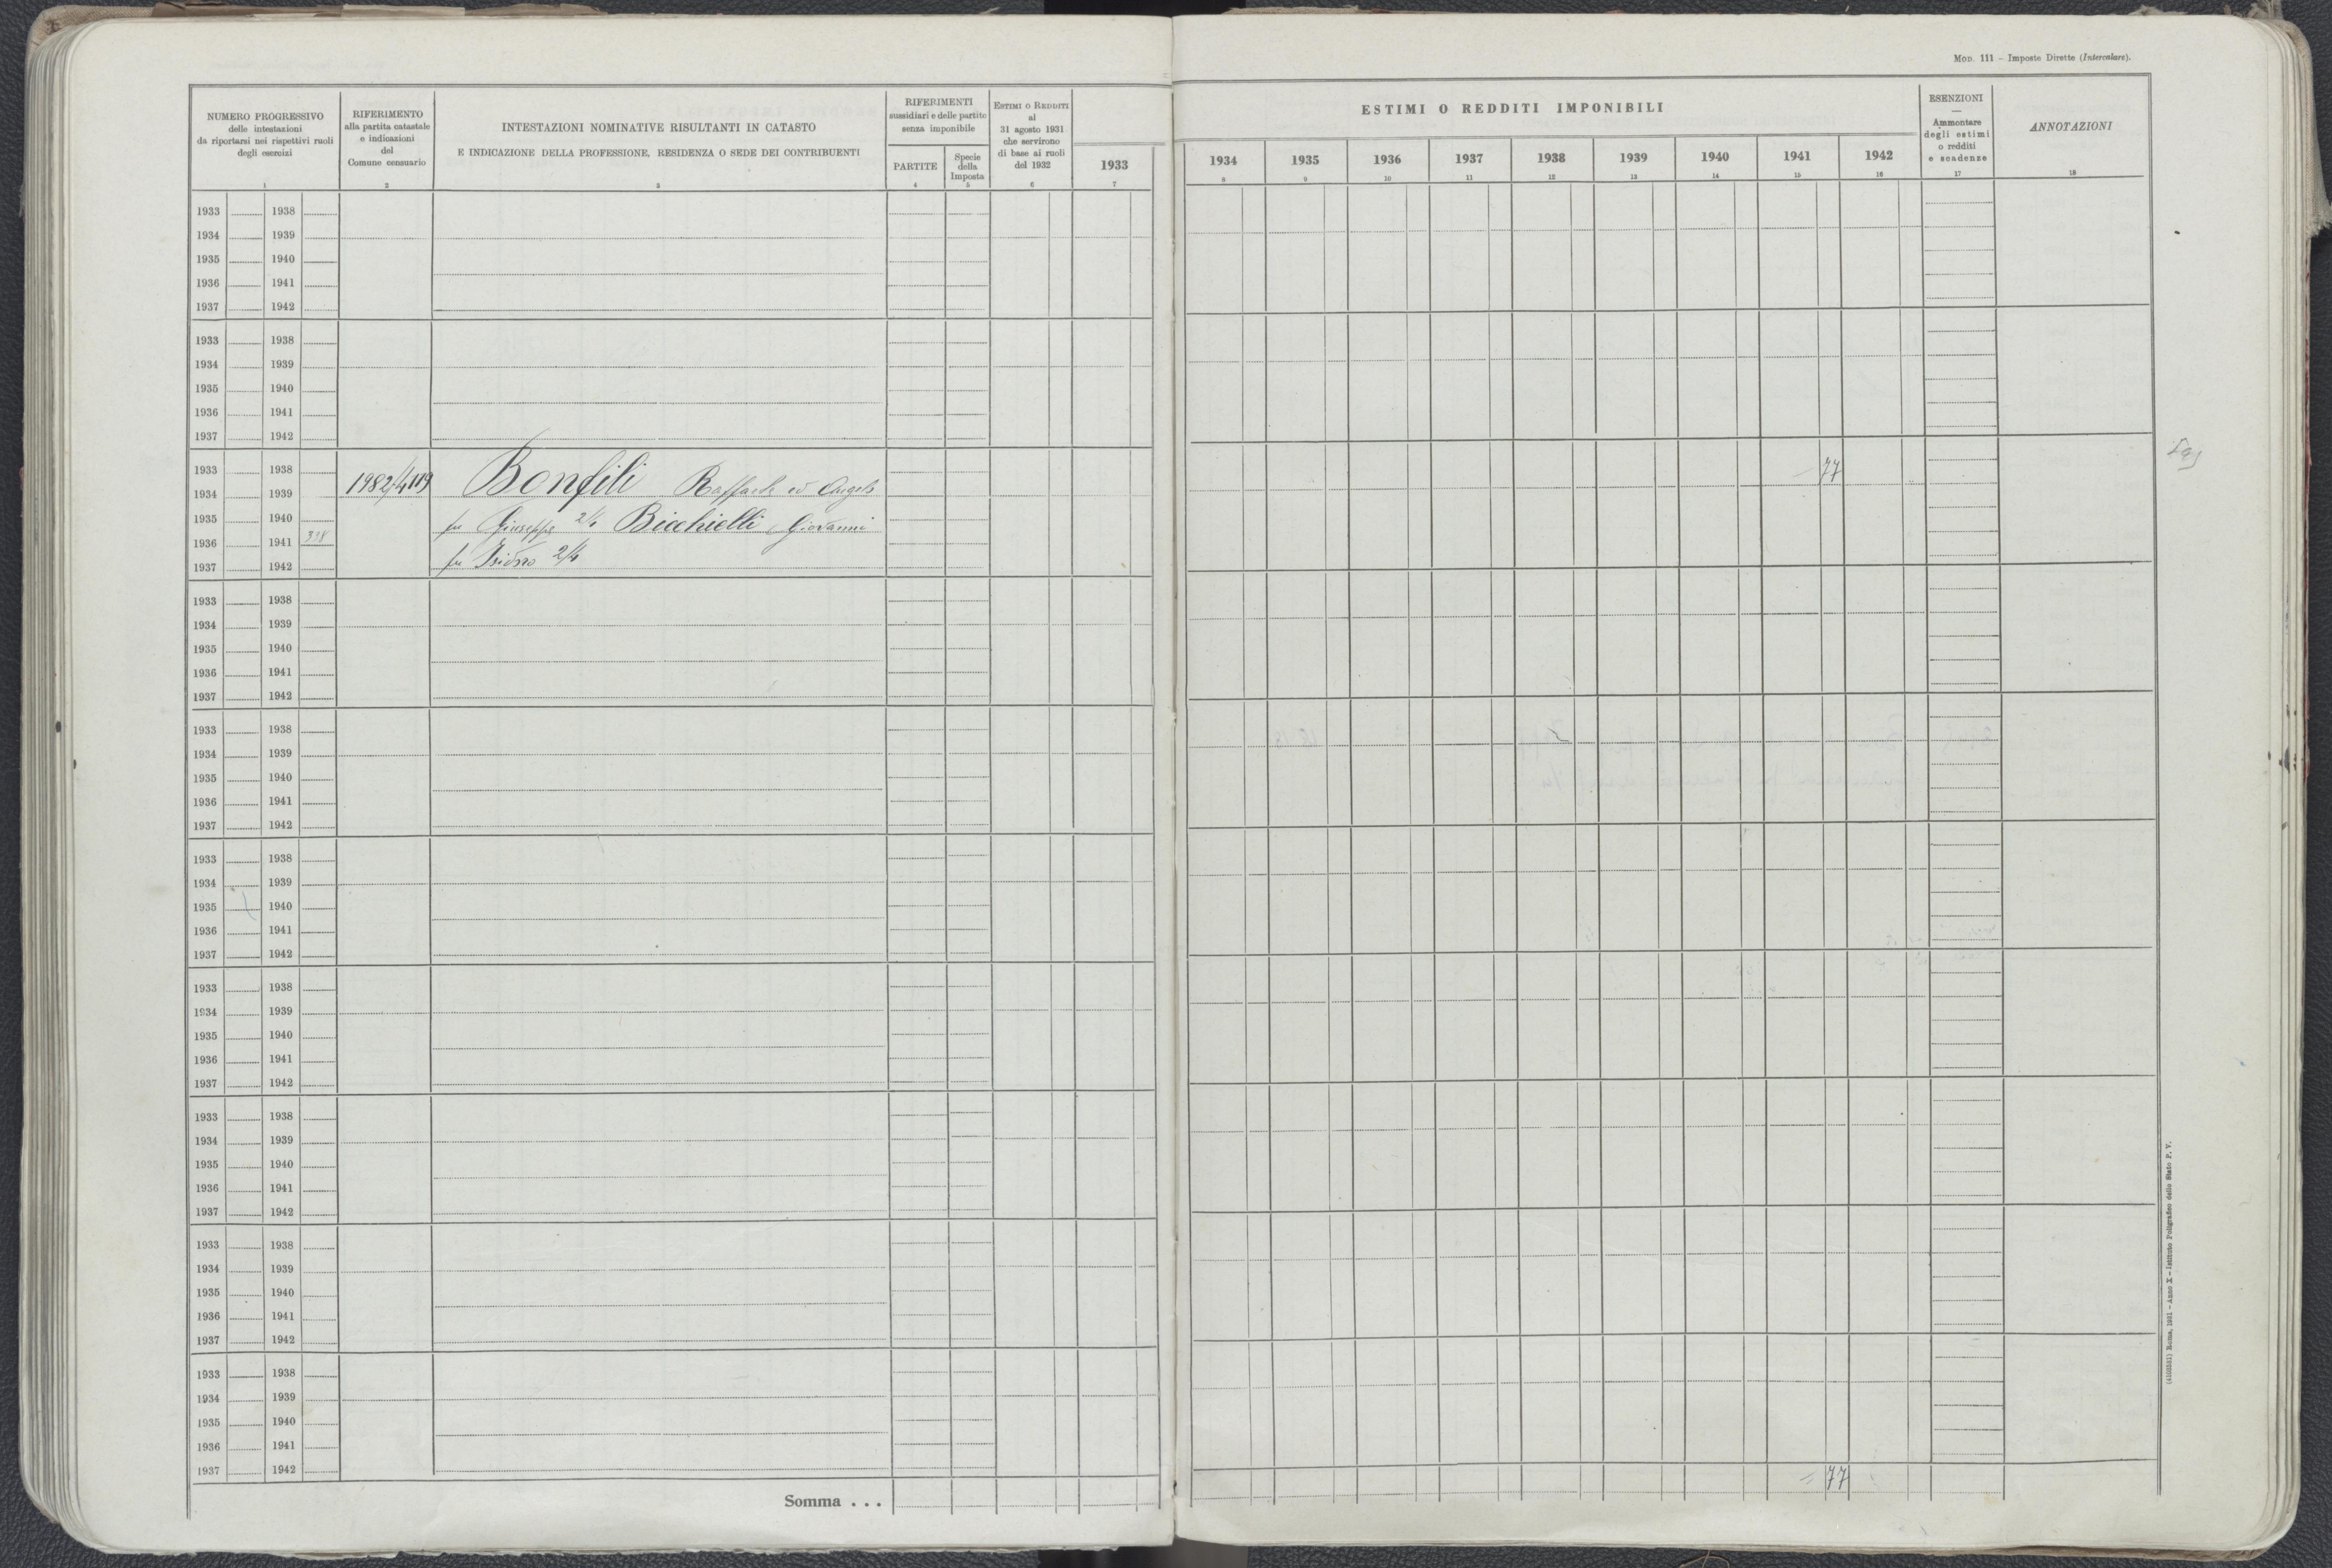 Mod. 111 – Imposte Dirette (Intercalare).
NUMERO PROGRESSIVO
delle intestazioni
da riportarsi nei rispettivi ruoli
degli esercizi
1
RIFERIMENTO
alla partita catastale
e indicazioni
del
Comune censuario
2
INTESTAZIONI NOMINATIVE RISULTANTI IN CATASTO
E INDICAZIONE DELLA PROFESSIONE, RESIDENZA O SEDE DEI CONTRIBUENTI
3
RIFERIMENTI
sussidiari e delle partite
senza imponibile
PARTITE
4
Specie
della
Imposta
5
ESTIMI O REDDITI
al
31 agosto 1931
che servirono
di base ai ruoli
del 1932
6
1933
7
ESTIMI O REDDITI IMPONIBILI
1934 1935 1936 1937 1938 1939 1940 1941 1942
8 9 10 11 12 13 14 15 16
ESENZIONI
—
Ammontare
degli estimi
o redditi
e scadenze
17
ANNOTAZIONI
18
1933 1938
1934 1939
1935 1940
1936 1941
1937 1942
1933 1938
1934 1939
1935 1940
1936 1941
1937 1942
1933 1938
1934 1939 1982/4119 Bonfili Raffaele ed Angelo 77
1935 1940 fu Giuseppe 2/4 Bicchielli Giovanni
1936 1941 398
1937 1942 fu Isidoro 2/4
1933 1938
1934 1939
1935 1940
1936 1941
1937 1942
1933 1938
1934 1939
1935 1940
1936 1941
1937 1942
1933 1938
1934 1939
1935 1940
1936 1941
1937 1942
1933 1938
1934 1939
1935 1940
1936 1941
1937 1942
1933 1938
1934 1939
1935 1940
1936 1941
1937 1942
1933 1938
1934 1939
1935 1940
1936 1941
1937 1942
1933 1938
1934 1939
1935 1940
1936 1941
1937 1942
Somma . . . = 77
(4103581) Roma, 1931 – Anno X – Istituto Poligrafico dello Stato P. V.